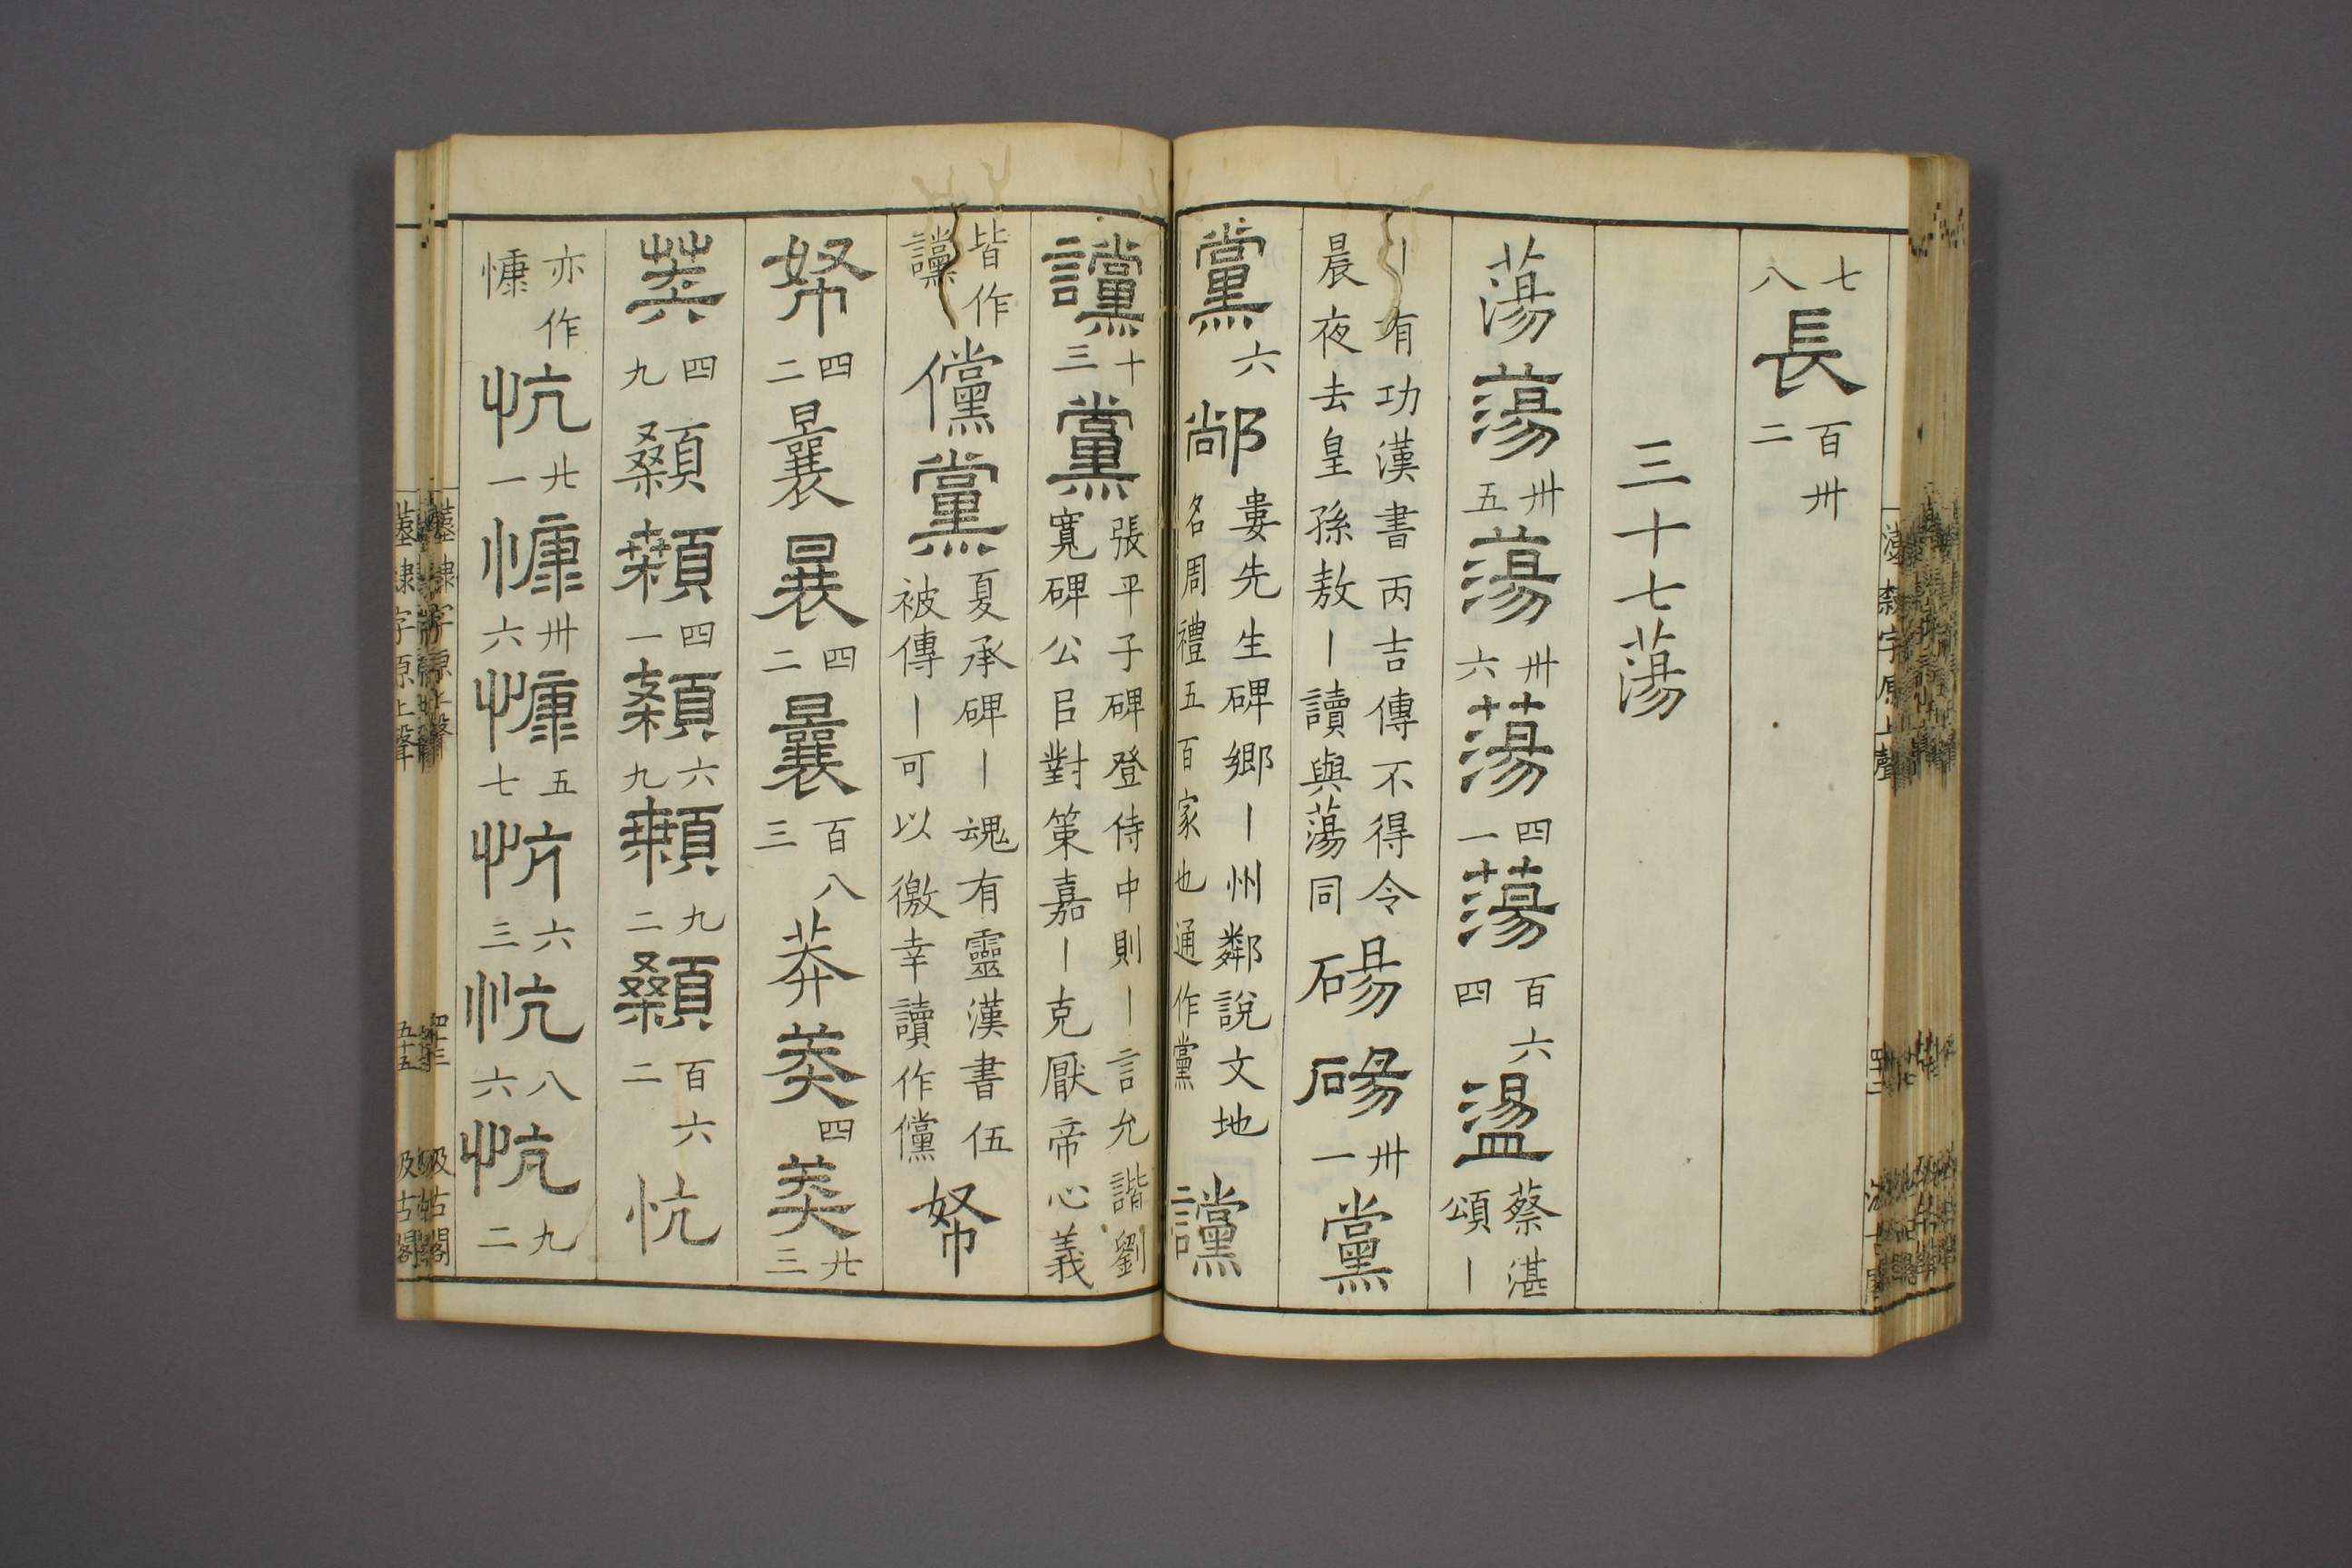 七八長百卅二
三十七蕩
蕩蕩卅五蕩卅六蕩四一蕩百六四盪蔡湛頌丨
丨有功漢書丙吉傳不得令晨夜去皇孫敖丨讀與蕩同碭碭卅一黨
黨六鄺婁先生碑鄉丨州鄰說文地名周禮五百家也通作黨讜二
讜十三黨張平子碑登侍中則丨丨言允諧劉寬碑公㠯對策嘉丨克厭帝心義
皆作讜儻黨夏承碑丨魂有靈漢書伍被傳丨可以徼幸讀作儻帑
帑四二曩曩四二曩百八三莽莽四莽廿三
莽四九顙顙四一顙六九顙九二顙百六二忼
亦作慷忼廿一慷卅六慷五七忼六三忼八六忼九二
漢隸字原上聲
四十二
汲古閣
漢隸字原上聲
四十三
汲古閣
五十五